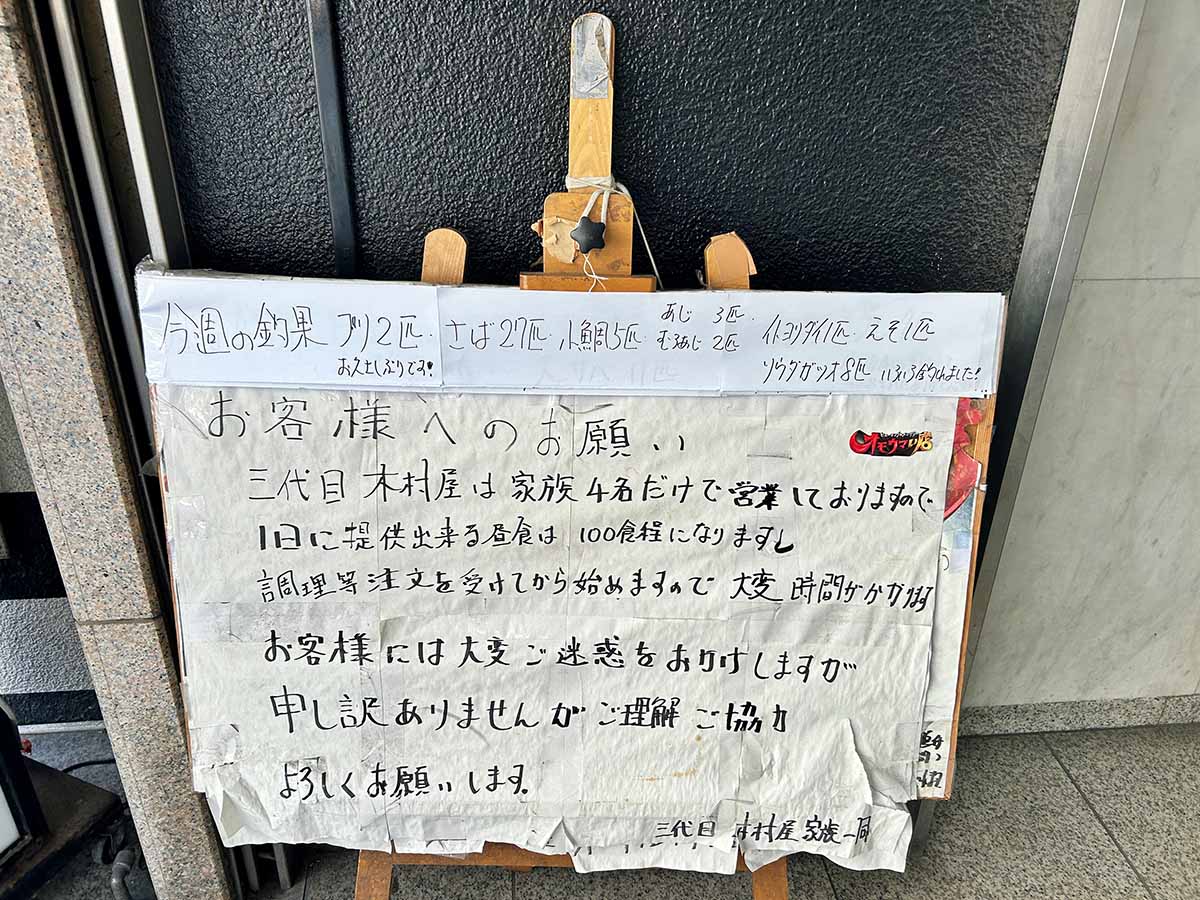 今週の釣果 ブリ2匹・さば27匹・小鯛5匹
お久しぶりです!
あじ 3匹・
むろあじ 2匹
イトヨリダイ1匹 えそ1匹
ソウダガツオ8匹 いろいろ釣れました!
お客様へのお願い
オモウマい店
三代目 木村屋は家族4名だけで営業しておりますので
1日に提供出来る昼食は100食程になりますし
調理等注文を受けてから始めますので大変時間がかかります
お客様には大変ご迷惑をおかけしますが
申し訳ありませんがご理解ご協力
よろしくお願いします。
三代目 木村屋 家族一同